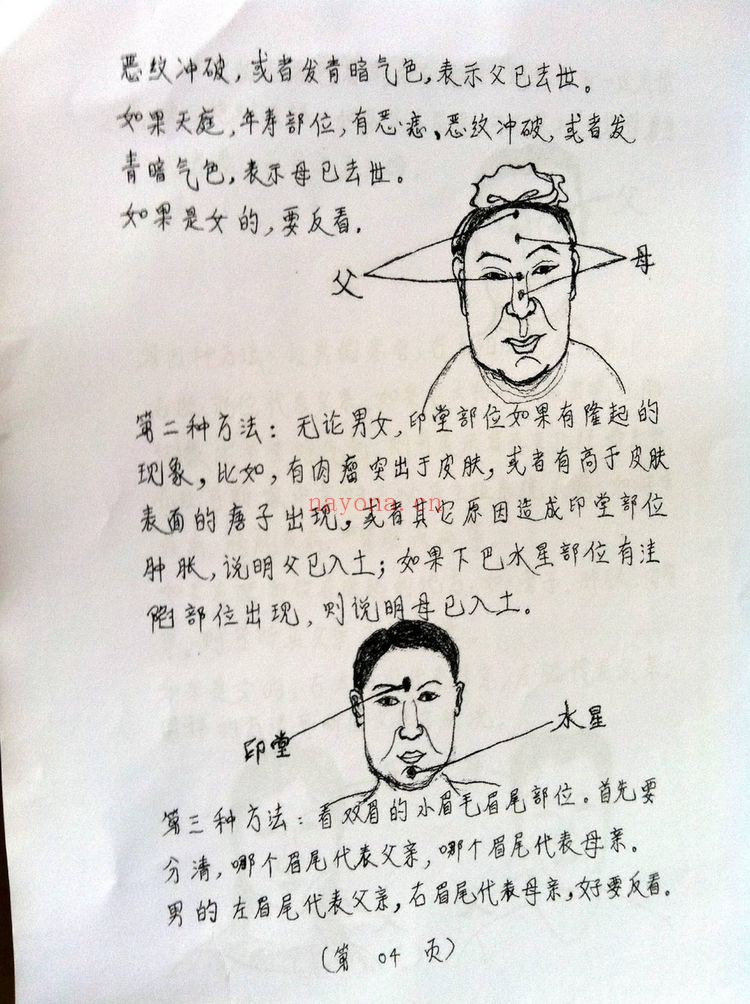 恶纹冲破，或者发青暗气色，表示父已去世。
如果天庭，年寿部位，有恶痣、恶纹冲破，或者发
青暗气色，表示母已去世。
如果是女的，要反看.
父
母
第二种方法：无论男女，印堂部位如果有隆起的
现象，比如，有肉瘤突出于皮肤，或者有高于皮肤
表面的痦子出现，或者其它原因造成印堂部位
肿胀，说明父已入土；如果下巴水星部位有洼
陷部位出现，则说明母已入土。
nayona.cn
印堂
水星
第三种方法：看双眉的小眉毛眉尾部位。首先要
分清，哪个眉尾代表父亲，哪个眉尾代表母亲。
男的左眉尾代表父亲，右眉尾代表母亲，女子要反看。
（第 04 页）